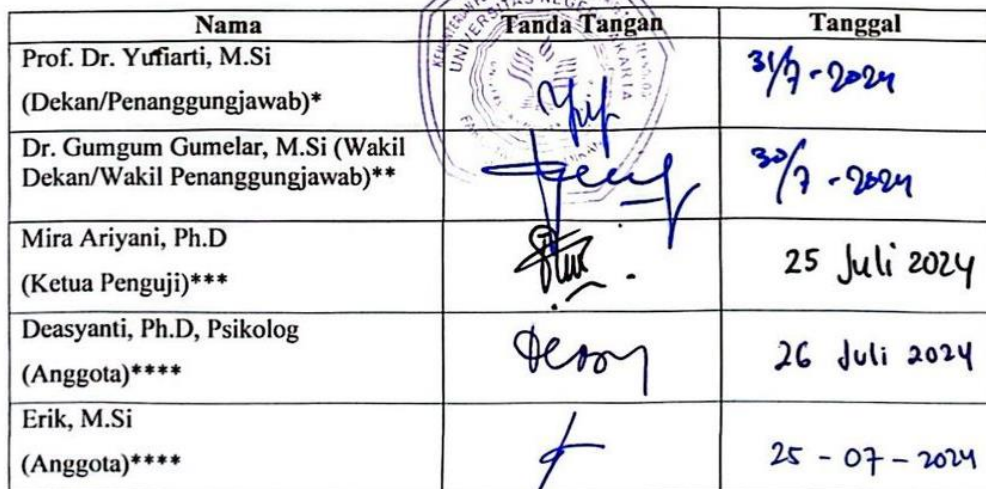 Nama Tanda Tangan Tanggal
Prof. Dr. Yufiarti, M.Si
(Dekan/Penanggungjawab)*
31/7-2024
Dr. Gumgum Gumelar, M.Si (Wakil
Dekan/Wakil Penanggungjawab)**
30/7-2024
Mira Ariyani, Ph.D
(Ketua Penguji)***
25 Juli 2024
Deasyanti, Ph.D, Psikolog
(Anggota)****
26 Juli 2024
Erik, M.Si
(Anggota)****
25-07-2024
UNIVERSITAS NEGERI